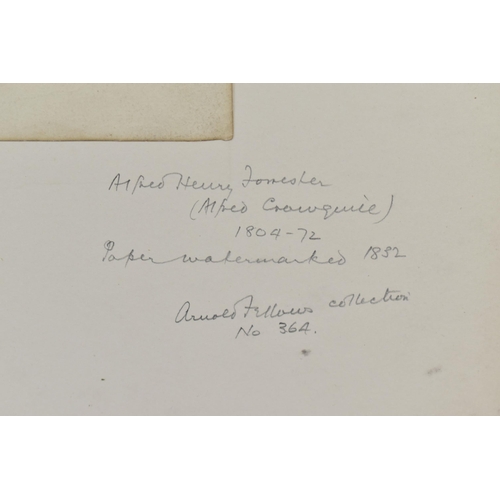 Alfred Henry Forrester
(Alfred Crowquill)
1804-72
Paper watermarked 1832
Arnold Fellows collection
No 364.